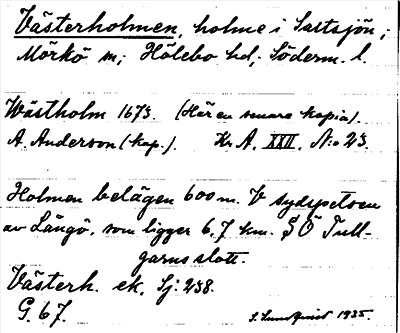 Västerholmen, holme i Saltsjön;
Mörkö sn; Hölebo hd; Söderm. l.
Wästholm 1673. (Här en senare kopia).
A. Anderson (kop.). Kr. A. XXII. N:o 23.
Holmen belägen 600 m. V sydspetsen
av Långö, som ligger 6,7 km. SÖ Tull-
garns slott.
Västerh. ek. Sj: 238.
G. 67.
S. Lundquist 1935.